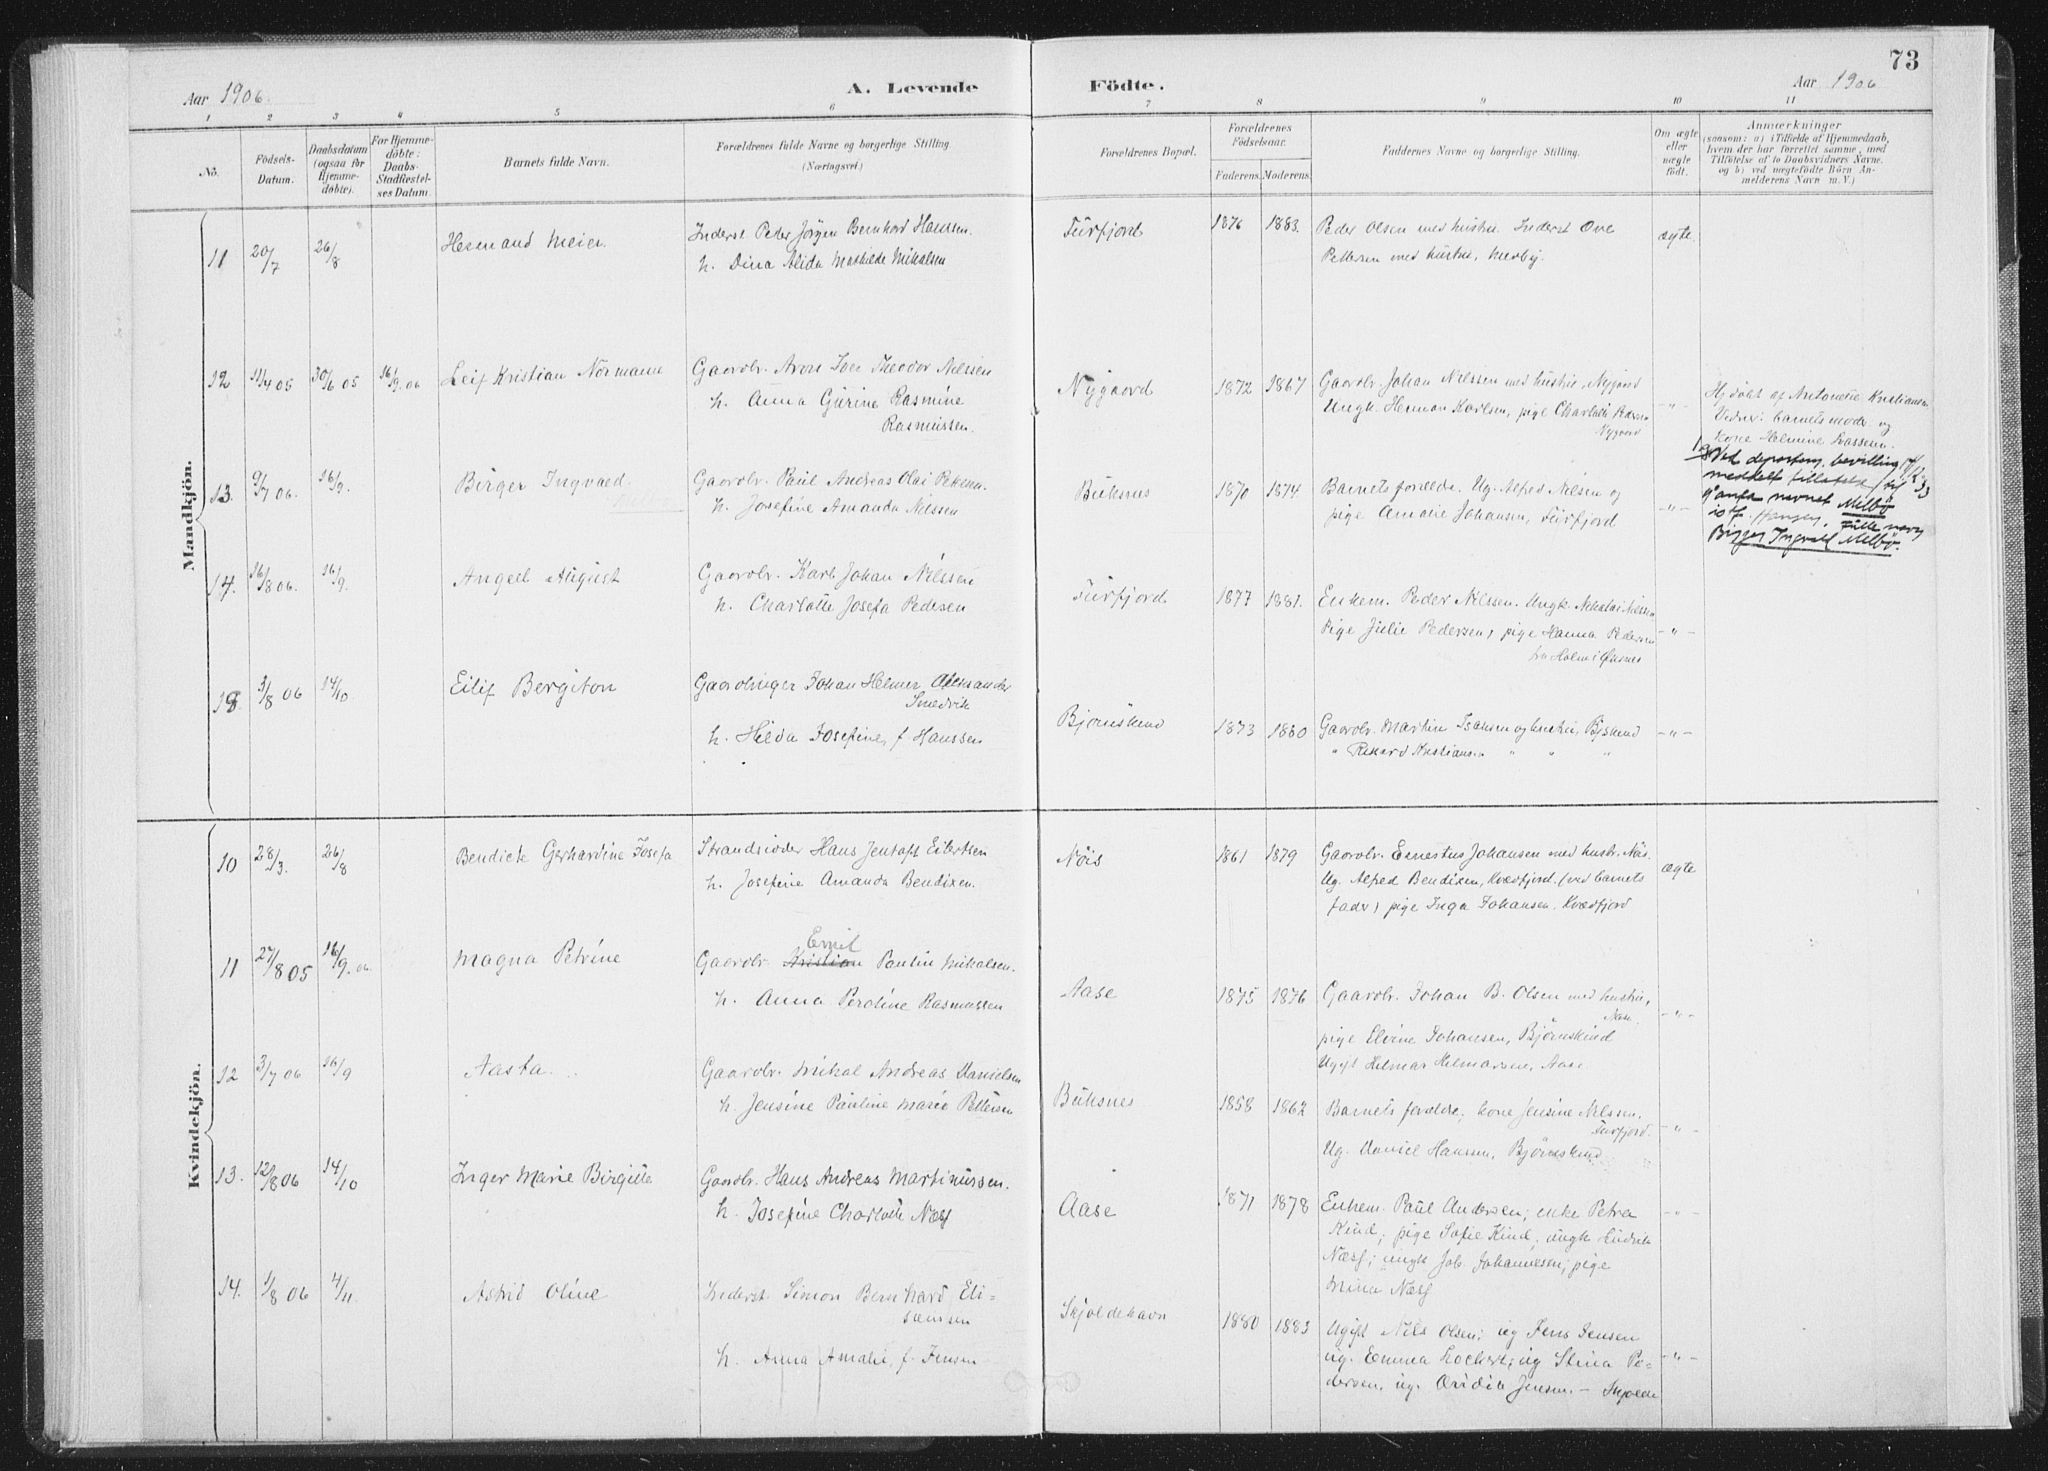 73
Aar 1906.
A. Levende
Födte.
Aar 1906
1 2 3 4 5 6 7 8 9 10 11
No.
Födsels-
Datum.
Daabsdatum
(ogsaa for
Hjemme-
döbte).
For Hjemme-
döbte:
Daabs-
Stadfæstel-
ses Datum.
Barnets fulde Navn.
Forældrenes fulde Navne og borgerlige Stilling.
(Næringsvei.)
Forældrenes Bopæl.
Forældrenes
Födselsaar.
Faderens. Moderens.
Faddernes Navne og borgerlige Stilling.
Om ægte
eller
uægte
födt.
Anmærkninger
(saasom: a) i Tilfælde af Hjemmedaab,
hvem der har forrettet samme, med
Tilföielse af to Daabsvidners Navne.
og b) ved uægtefödte Börn An-
melderens Navn m. V.)
Mandkjön.
11 20/7 26/8 Hermand Meier
Inderst Peder Jörgen Bernhard Hanssen
h. Dina Alida Mathilde Mikalsen
Fürfjord 1876 1883.
Peder Olsen med hustru. Inderst Ove
Pettersen med hustru, Medby.
ægte.
12 11/4 05 30/6 05 16/9 06 Leif Kristian Normann
Gaardbr. Aron Iver Theodor Nilssen
h. Anna Gurine Rasmine
Rasmussen.
Nygaard 1872 1867
Gaardbr. Johan Nilssen med hustru, Nygaard
Ungk. Herman Karlsen, pige Charlotte
Nygaard
- " -
Hj.döbt af Antonette Kristiansen
Vidner: barnets moder og
kone Helmine Lassesen.
13. 9/7 06. 16/9. Birger Ingvard.
Gaardbr. Paul Andreas Olai
h. Josefine Amanda Nilssen
Buksnes 1870 1874
Barnets forældre. Ug. Alfred Nilsen og
pige Amalie Johansen, Fürfjord
- " -
meddelt tillatelse til
navnet Melbö
Fulle navn
Birger Ingvald Melbö.
14. 16/8 06. 16/9. Angel August
Gaardbr. Karl Johan Nilssen
h. Charlotte Josefa Pedersen
Fürfjord 1877 1881.
Enkem. Peder Nilssen. Ungk. Nikolai Nilssen
Pige Julie Pedersen, pige Hanna Pedersen
fra Holm i Øksnes
- " -
3/8 06 14/10 Eilif Bergiton
Gaardbruger Johan Helmer Aleksander
Smedvik
h. Hilda Josefine, f. Hanssen
Björnskind 1873 1860
Gaardbr. Martin Isaksen og hustru, Bjskind
" Rikard Kristiansen " " "
- " -
Kvindekjön.
10 28/3. 26/8 Bendicte Gerhardine Josefa
Strandsidder Hans Jentoft Eilertsen
h. Josefine Amanda Bendixen.
Nöis 1861 1879
Gaardbr. Ernestus Johansen med hustr. Nöis.
Ug. Alfred Bendixen, Kvædfjord. (ved barnets
fader) pige Inga Johansen. Kvædfjord
ægte
11 27/8 05 16/9. 06. Magna Petrine
Emil
Gaardbr. Kristian Paulin Mikalsen.
h. Anna Peroline Rasmussen
Aase 1875 1876
Gaardbr. Johan B. Olsen med hustru,
Aase.
pige Elvine Johansen, Björnskind
Ugift Helmar Helmarsen, Aase
- " -
12 3/7 06 16/9 Aasta.
Gaardbr. Mikal Andreas Danielsen
h. Jensine Pauline Marie Pettersen
Buksnes 1858 1862
Barnets forældre, kone Jensine Nilssen,
Fürfjord.
Ug. Daniel Hanssen, Björnskind
- " -
13. 12/8 06 14/10 Inger Marie Birgitte
Gaardbr. Hans Andreas Martinussen.
h. Josefine Charlotte Næss
Aase 1871 1878
Enkem. Paul Andersen; enke Petra
Kind; pige Sofie Kind, ungk. Hendrik
Næss; ungk. Joh. Johannesen; pige
Mina Næss
- " -
14. 1/8 06 4/11. Astrid Oline
Inderst. Simon Bernhard Eli=
sæussen
h. Anna Amalie, f. Jensen
Skjoldehavn 1880 1883
Ugift Nils Olsen; ug. Jens Jensen
ug. Emma Lochert; ug Stina Pe=
dersen, ug. Jensen. - Skjolde
- " -